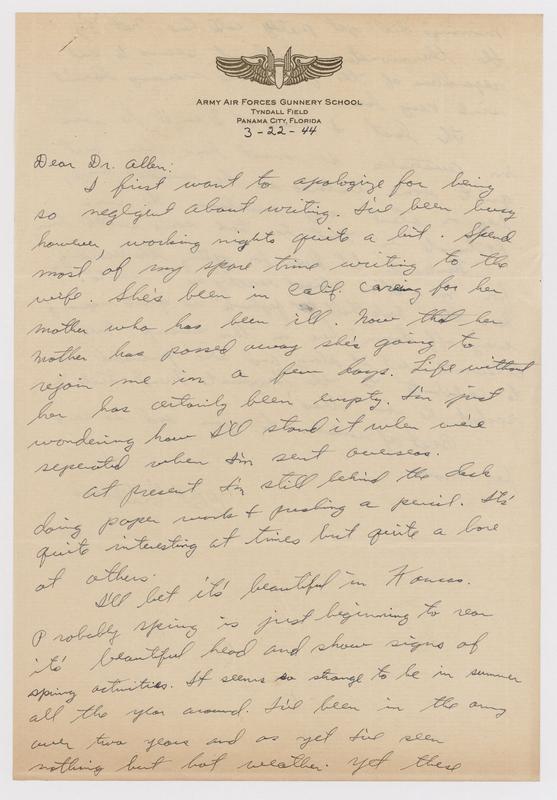 ARMY AIR FORCES GUNNERY SCHOOL
TYNDALL FIELD
PANAMA CITY, FLORIDA
3-22-44
Dear Dr. Allen:
I first want to apologize for being
so negligent about writing. I've been busy
however, working nights quite a bit. Spend
most of my spare time writing to the
wife. She's been in Calif. caring for her
mother who has been ill. Now that her
mother has passed away she's going to
rejoin me in a few days. Life without
her has certainly been empty. I'm just
wondering how I'll stand it when we're
seperated when I'm sent overseas.
At present I'm still behind the desk
doing paper work & pushing a pencil. Its'
quite interesting at times but quite a bore
at others.
I'll bet its' beautiful in Kansas.
Probably spring is just beginning to rear
its' beautiful head and show signs of
spring activities. It seems so strange to be in summer
all the year around. I've been in the army
over two years and as yet I've seen
nothing but hot weather. Yet these